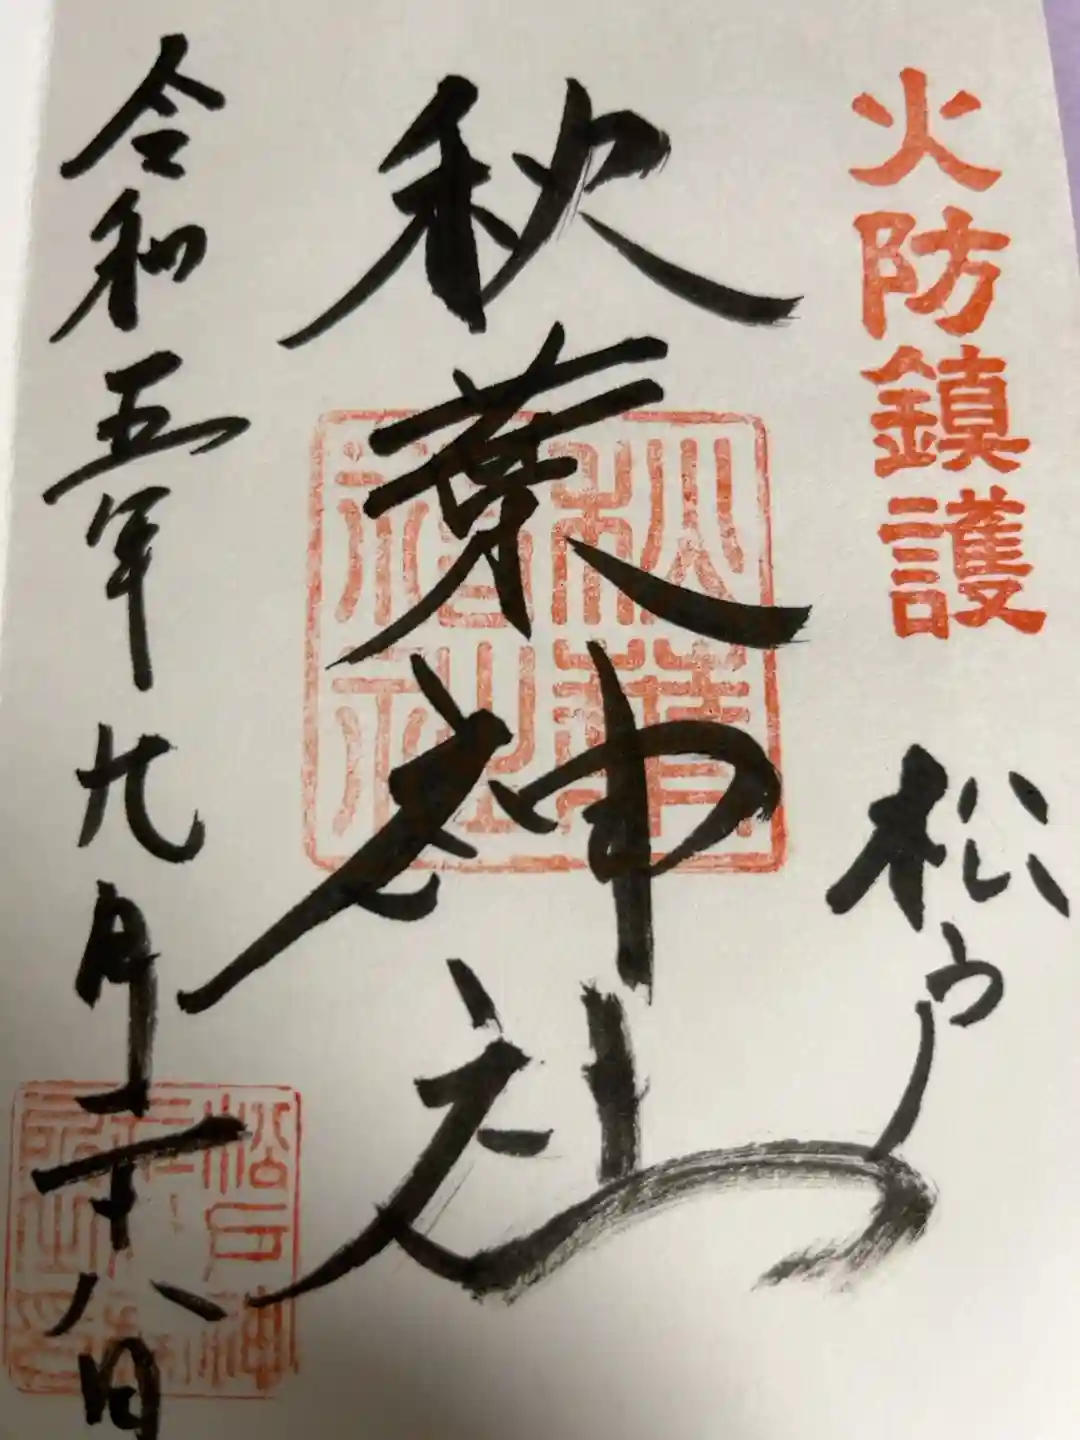 火防鎮護
松戸
秋葉神社
秋葉神社
令和五年九月十八日